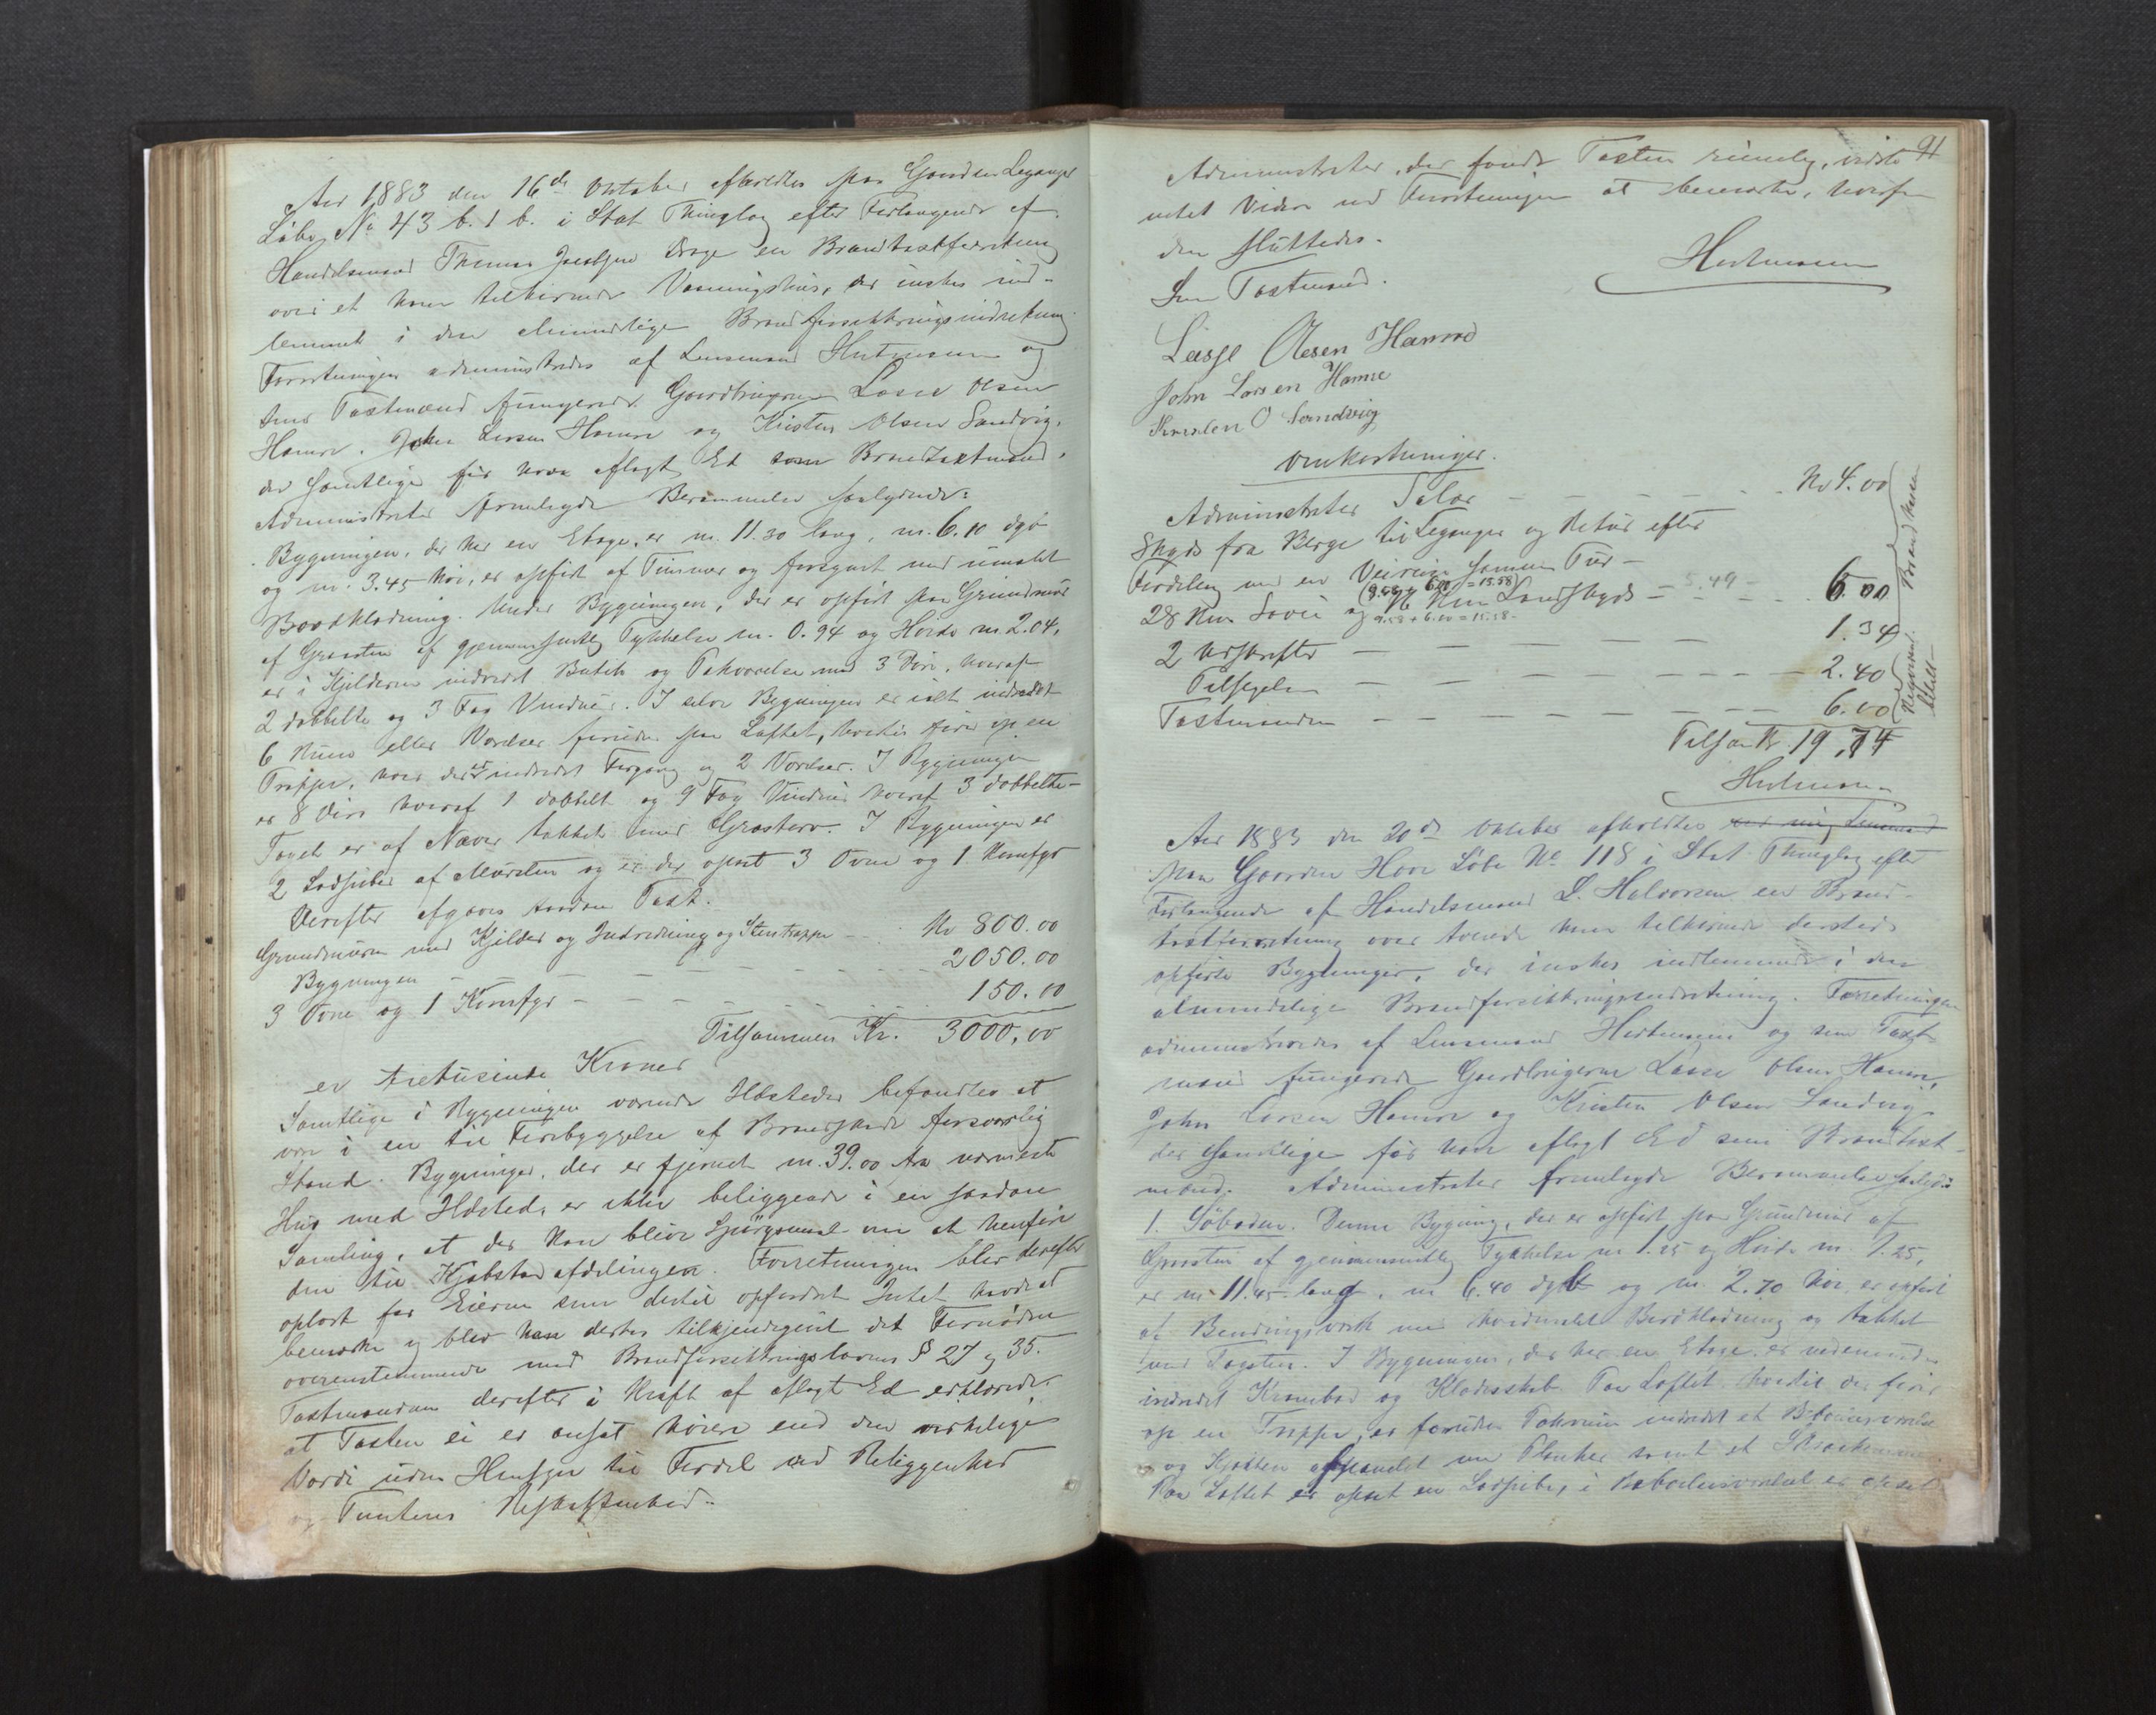 Aar 1883 den 16de Oktober afholdtes paa Gaarden Leganger
Løbe No 43 b. 1 b. i Stat Thinglag efter Forlangende af
Handelsmand Thomas Jacobsen Drage en Brandtaxtforretning
over et ham tilhørende Vaaningshus, der ønskes ind-
lemmet i den almindelige Brandforsikringsindretning.
Forretningen administredes af Lensmand og
som Taxtmænd fungerede Gaardbrugerne Lasse Olsen
Hamre, John Larsen Hamre og Kristen Olsen Sandvig,
der samtlige før have aflagt Ed som Brandtaxtmænd.
Administrator fremlagde Berammelse saalydende:
Bygningen, der har en Etage, er m. 11.30 lang, m. 6.10 dyb
og m. 3.45 høi, er opført af Timmer og forsynet med umalet
Bordklædning. Under Bygningen, der er opført paa Grundmur
af Graasten af gjennemsnitlig Tykkelse m. 0.94 og Høide m. 2.04,
er i Kjelderen indredet Butik og Pakværelse med 3 Døre, hvoraf
2 dobbelte og 3 Fag Vinduer. I selve Bygningen er ialt indredet
6 Rum eller Værelser foruden paa Loftet, hvortil fører op en
Trappe, hvor der er indredet Forgang og 2 Værelser. I Bygningen
er 8 Døre hvoraf 1 dobbelt og 9 Fag Vinduer hvoraf 3 dobbelte -
Taget er af Næver takket med Græstorv. I Bygningen er
2 Ladpiber af Mursten og er der opsat 3 Ovne og 1 Komfyr
Derefter afgaves saadan Taxt.
Grundmuren med Kjelder og Indredning og Stentrappe - Kr 800.00
Bygningen - - - - - - - 2050.00
3 Ovne og 1 Komfyr - - - - - 150.00
Tilsammen Kr. 3000.00
er tretusinde Kroner
Samtlige i Bygningen værende Ildsteder befandtes at
være i en til Forebyggelse af Brandskade forsvarlig
Stand. Bygningen, der er fjernet m. 39.00 fra nærmeste
Hus med Ildsted, er ikke beliggende i en saadan
Samling, at der kan blive Spørgsmaal om at henføre
den til Kjøbstadafdelingen. Forretningen blev derefter
oplæst for Eieren som dertil opfordret Intet havde at
bemærke og blev ham derhos tilkjendegivet det Fornødne
overenstemmende med Brandforsikringslovens § 27 og 35.
Taxtmændene derefter i Kraft af aflagt Ed erklærede
at Taxten ei er ansat høiere end den virkelige
Værdi uden Hensyn til Fordel ved Beliggenhed
og Tomtens Beskaffenhed.
91
Administrator, der fandt Taxten rimelig, vidste
intet Videre ved Forretningen at bemærke, hvorfor
den sluttedes.
Som Taxtmænd.
Lasse Olesen Hamre
John Larsen Hamre
Kristen O Sandvig
Omkostninger.
Administrator Salær - - - - - Kr 4.00
Skyds fra Berge til Leganger og Retur efter
Fordeling med en samme Tur -
(9.58 + 6.00 = 15.58)
28 Km Søvei og Km Landskyds - 5.49 - 6.00
9.58 + 6.00 = 15.58
2 Udskrifter - - - - 1.34
Tilsigelse - - - - - - - 2.40
Taxtmændene - - - - - - - 6.00
Tilsam Kr. 19,74
Aar 1883 den 20de Oktober afholdtes ved mig Lensmand
paa Gaarden Hove Løbe No 118 i Stat Thinglag efter
Forlangende af Handelsmand L. Halvorsen en Brand-
taxtforretning over tvende ham tilhørende dersteds
opførte Bygninger, der ønskes indlemmede i den
almindelige Brandforsikringsindretning. Forretningen
administreredes af Lensmand og som Taxt-
mænd fungerede Gaardbrugerne Lasse Olsen Hamre,
John Larsen Hamre og Kristen Olsen Sandvig
der samtlige før have aflagt Ed som Brandtaxt-
mænd. Administrator fremlagde Berammelse saalyd:
1. Søboden. Denne Bygning, der er opført paa Grundmur af
Graasten af gjennemsnitlig Tykkelse m 1.25 og Høide m. 1.25,
er m. 11.45 lang, m 6.40 dyb og m. 2.70 høi, er opført
af Bindingsværk med hvidmalet Bordklædning og takket
med Tagsten. I Bygningen, der har en Etage er nedenunder
indredet Krambod og Klædeskab. Paa Loftet hvortil der fører
op en Trappe, er foruden Pakrum indredet et Beboelsesværelse
og Kjøkken af Planker samt et
Paa Loftet er opsat en Ladpibe, i Beboelsesværelset er opsat